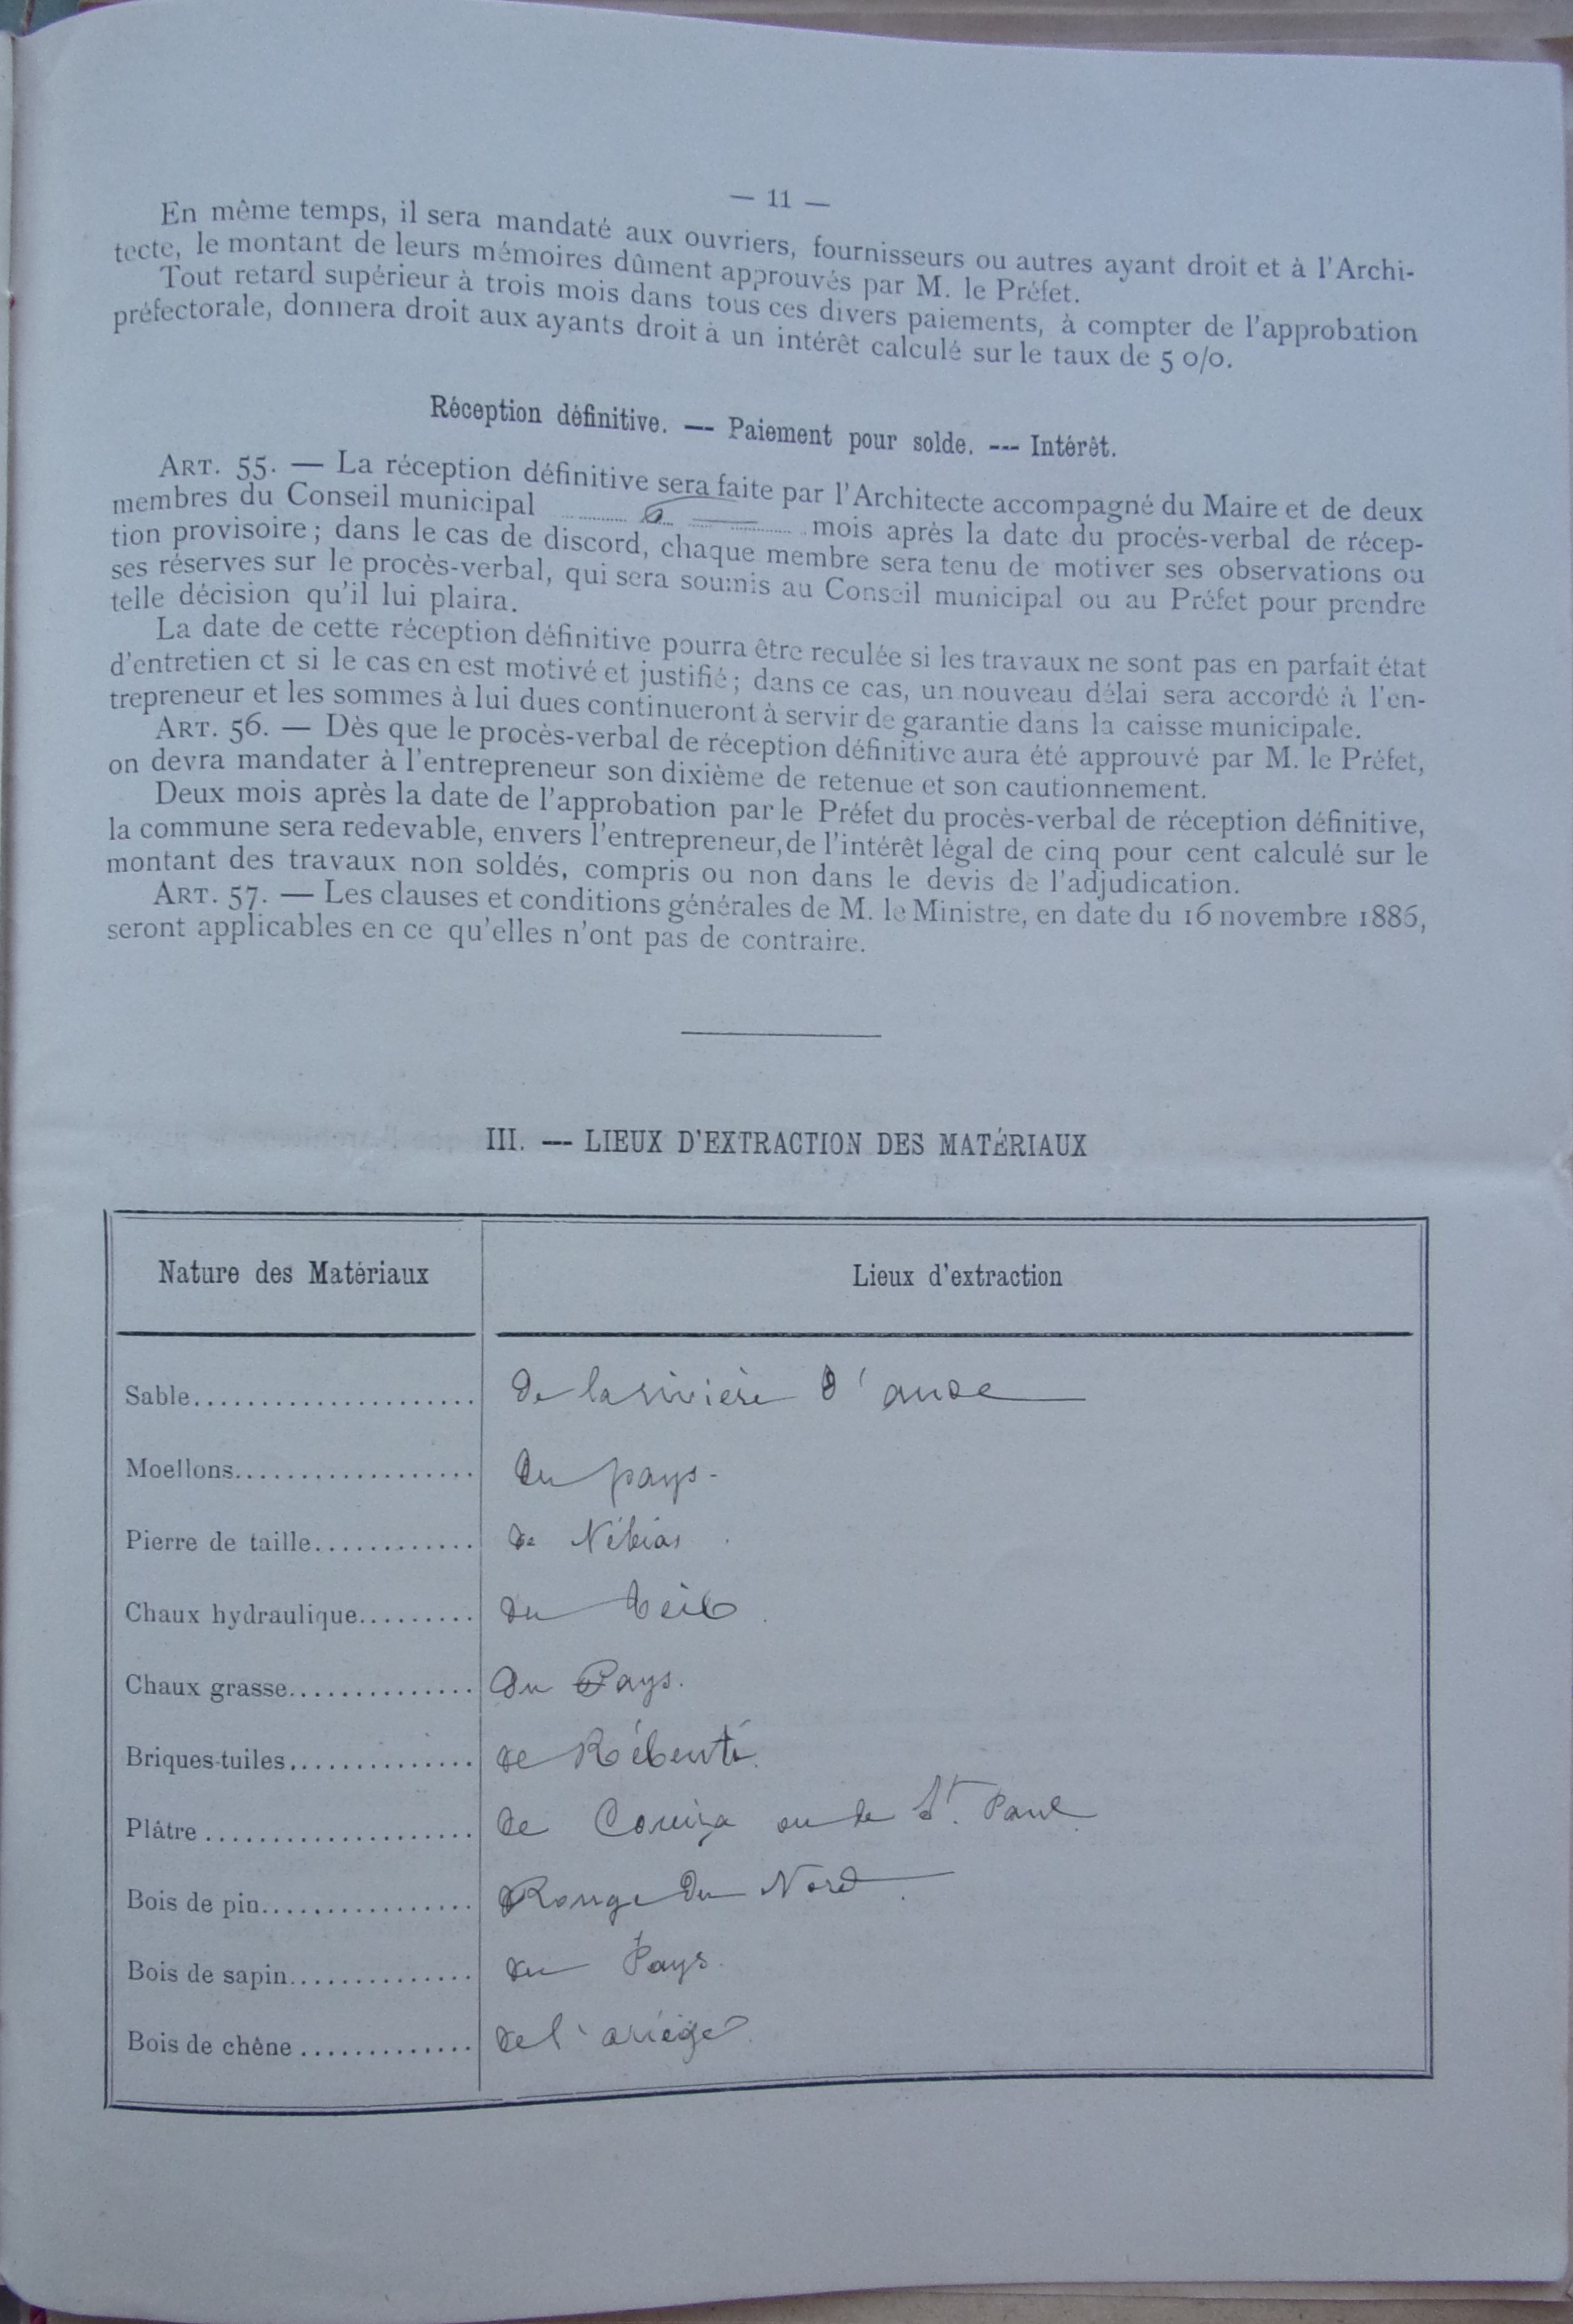 — 11 —
En même temps, il sera mandaté aux ouvriers, fournisseurs ou autres ayant droit et à l'Archi-
tecte, le montant de leurs mémoires dûment approuvés par M. le Préfet.
Tout retard supérieur à trois mois dans tous ces divers paiements, à compter de l'approbation
préfectorale, donnera droit aux ayants droit à un intérêt calculé sur le taux de 5 o/o.
Réception définitive. — Paiement pour solde. — Intérêt.
ART. 55. — La réception définitive sera faite par l'Architecte accompagné du Maire et de deux
membres du Conseil municipal 6 mois après la date du procès-verbal de récep-
tion provisoire ; dans le cas de discord, chaque membre sera tenu de motiver ses observations ou
ses réserves sur le procès-verbal, qui sera soumis au Conseil municipal ou au Préfet pour prendre
telle décision qu'il lui plaira.
La date de cette réception définitive pourra être reculée si les travaux ne sont pas en parfait état
d'entretien et si le cas en est motivé et justifié ; dans ce cas, un nouveau délai sera accordé à l'en-
trepreneur et les sommes à lui dues continueront à servir de garantie dans la caisse municipale.
ART. 56. — Dès que le procès-verbal de réception définitive aura été approuvé par M. le Préfet,
on devra mandater à l'entrepreneur son dixième de retenue et son cautionnement.
Deux mois après la date de l'approbation par le Préfet du procès-verbal de réception définitive,
la commune sera redevable, envers l'entrepreneur, de l'intérêt légal de cinq pour cent calculé sur le
montant des travaux non soldés, compris ou non dans le devis de l'adjudication.
ART. 57. — Les clauses et conditions générales de M. le Ministre, en date du 16 novembre 1886,
seront applicables en ce qu'elles n'ont pas de contraire.
III. — LIEUX D'EXTRACTION DES MATÉRIAUX
Nature des Matériaux Lieux d'extraction
Sable..................... de la rivière d'aude
Moellons.................. du pays -
Pierre de taille............ de Nébias .
Chaux hydraulique......... du teil .
Chaux grasse.............. du Pays.
Briques-tuiles.............. de Rébenti.
Plâtre .................... de Couiza ou de St. Paul.
Bois de pin................ Rouge du Nord .
Bois de sapin.............. du Pays.
Bois de chêne ............. de l'ariège.